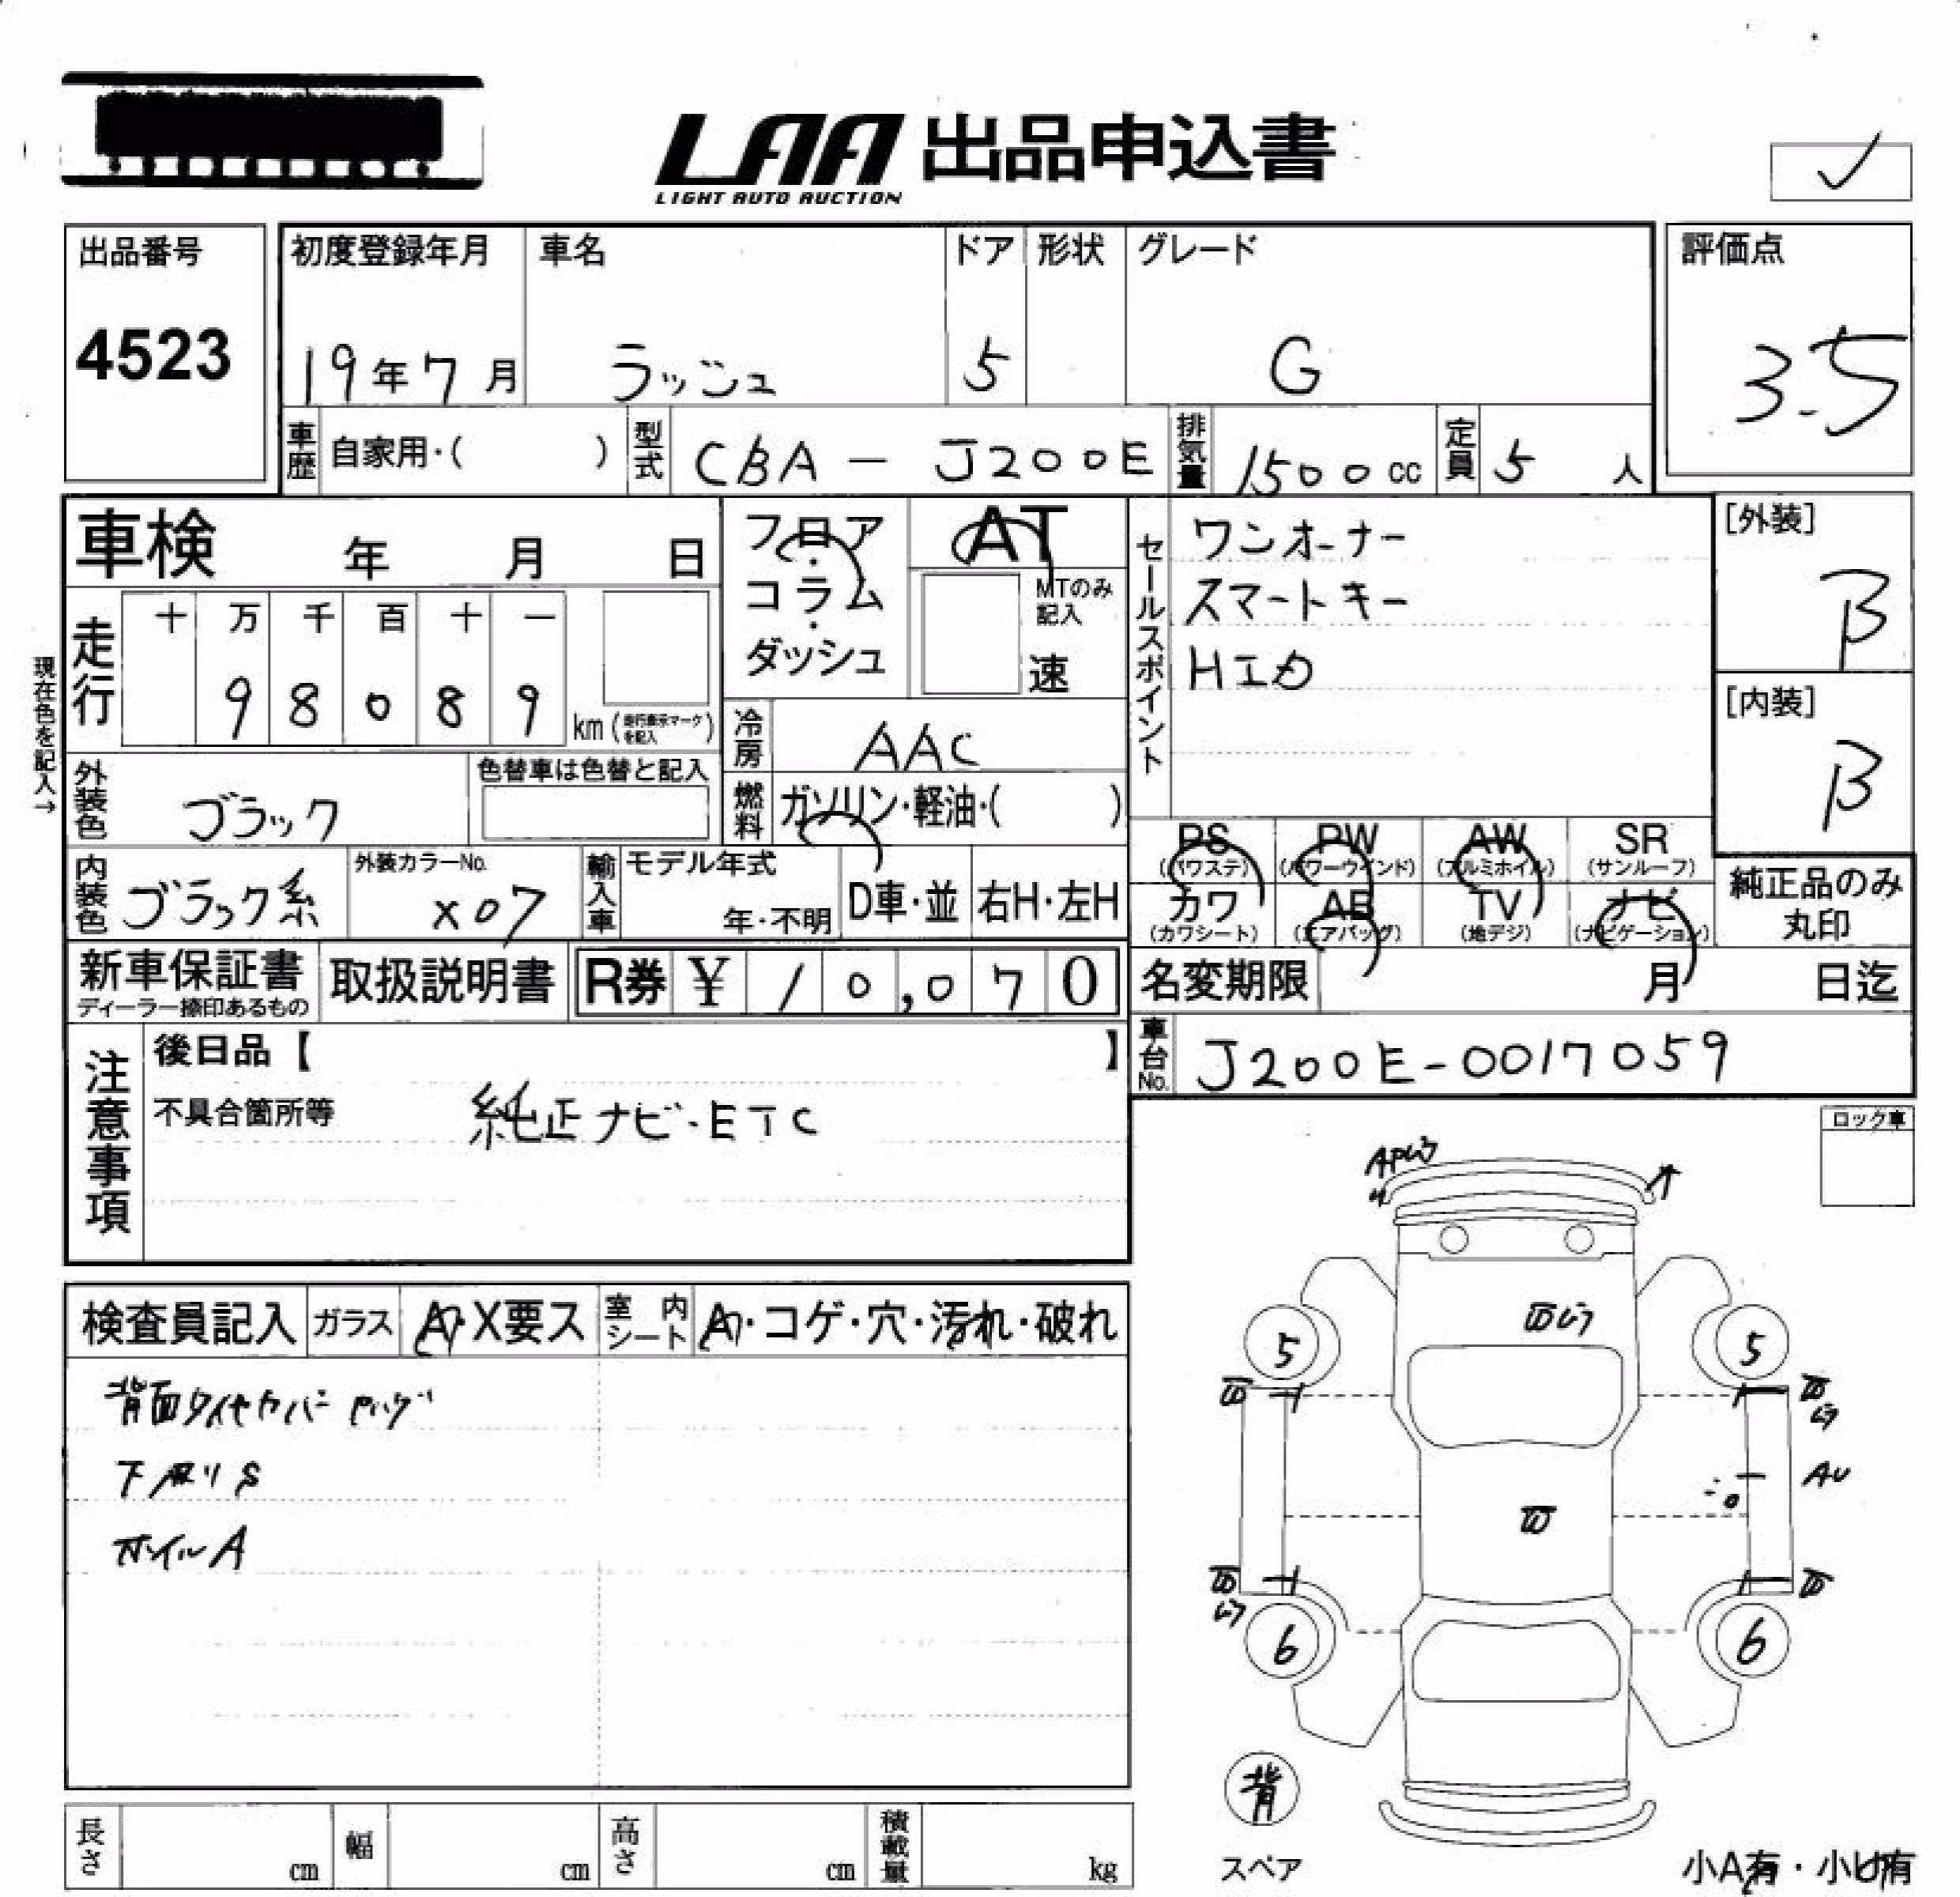 LAA 出品申込書
LIGHT AUTO AUCTION
出品番号 初度登録年月 車名 ドア 形状 グレード 評価点
4523 19年7月 ラッシュ 5 G 3.5
車歴 自家用・( ) 型式 CBA - J200E 排気量 1500cc 定員 5人
車検 年 月 日 フロア・コラム・ダッシュ AT
MTのみ記入 速
セールスポイント
ワンオーナー
スマートキー
HID
[外装]
B
[内装]
B
現在色を記入→
走行 十 万 千 百 十 一
9 8 0 8 9 km (走行表示マークを記入)
冷房 AAC
外装色 ブラック 色替車は色替と記入
燃料 ガソリン・軽油・( )
PS (パワステ) PW (パワーウインド) AW (アルミホイル) SR (サンルーフ)
カワ (カワシート) AB (エアバッグ) TV (地デジ) ナビ (ナビゲーション)
純正品のみ丸印
内装色 ブラック系 外装カラーNo. X07 輸入車 モデル年式 年・不明 D車・並 右H・左H
新車保証書 取扱説明書 R券 ¥ 10,070
ディーラー捺印あるもの
名変期限 月 日迄
車台No. J200E-0017059
注意事項
後日品【 】
不具合箇所等 純正ナビ・ETC
ロック車
検査員記入 ガラス A・X要ス 室内シート A・コゲ・穴・汚れ・破れ
背面タイヤカバー
下廻りS
ホイルA
5 5
AU
6 6
背
スペア
小A有・小U有
長さ cm 幅 cm 高さ cm 積載量 kg